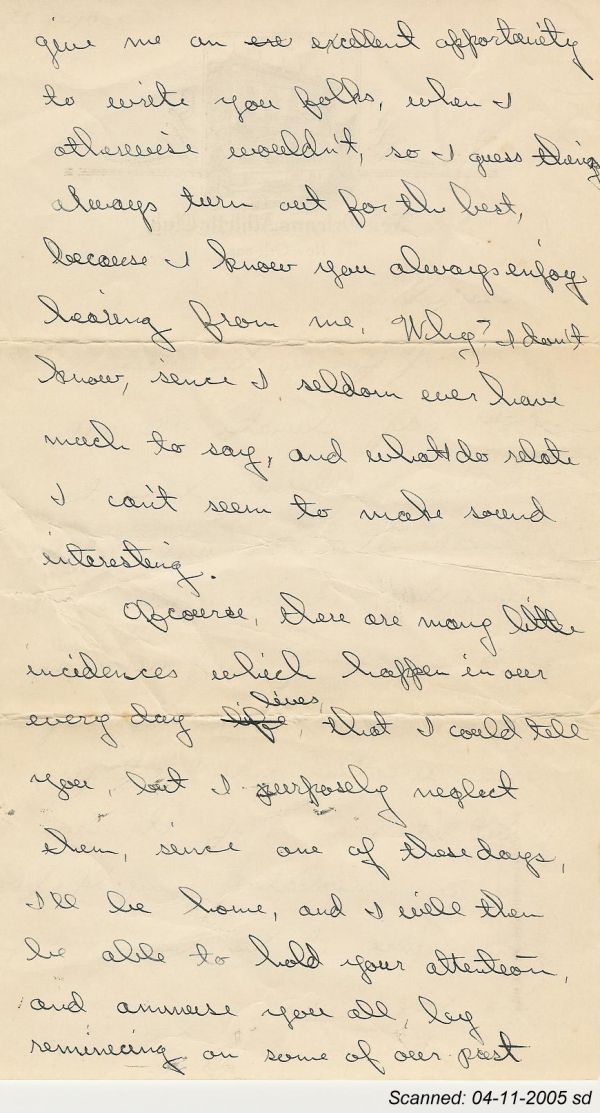 give me an exe excellent opportunity
to write you folks, when I
otherwise wouldn't, so I guess things
always turn out for the best,
because I know you always enjoy
hearing from me. Why? I don't
know, sence I seldom ever have
much to say, and what I do relate
I can't seem to make sound
interesting.
Ofcourse, there are many little
incidences which happen in our
every day life lives, that I could tell
you, but I purposely neglect
them, sence one of these days,
I'll be home, and I will then
be able to hold your attention,
and ammuse you all, by
reminecing on some of our past
Scanned: 04-11-2005 sd